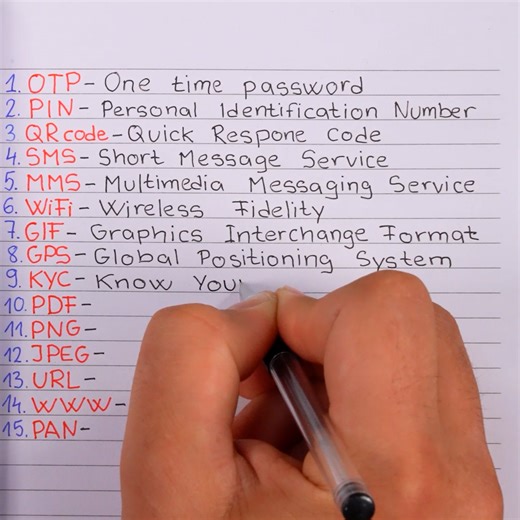 1. OTP - One time password
2. PIN - Personal Identification Number
3 QR code - Quick Respone Code
4. SMS - Short Message Service
5. MMS - Multimedia Messaging Service
6. WiFi - Wireless Fidelity
7. GIF - Graphics Interchange Format
8. GPS - Global Positioning System
9. KYC - Know You
10. PDF -
11. PNG -
12. JPEG -
13. URL -
14. WWW -
15. PAN -